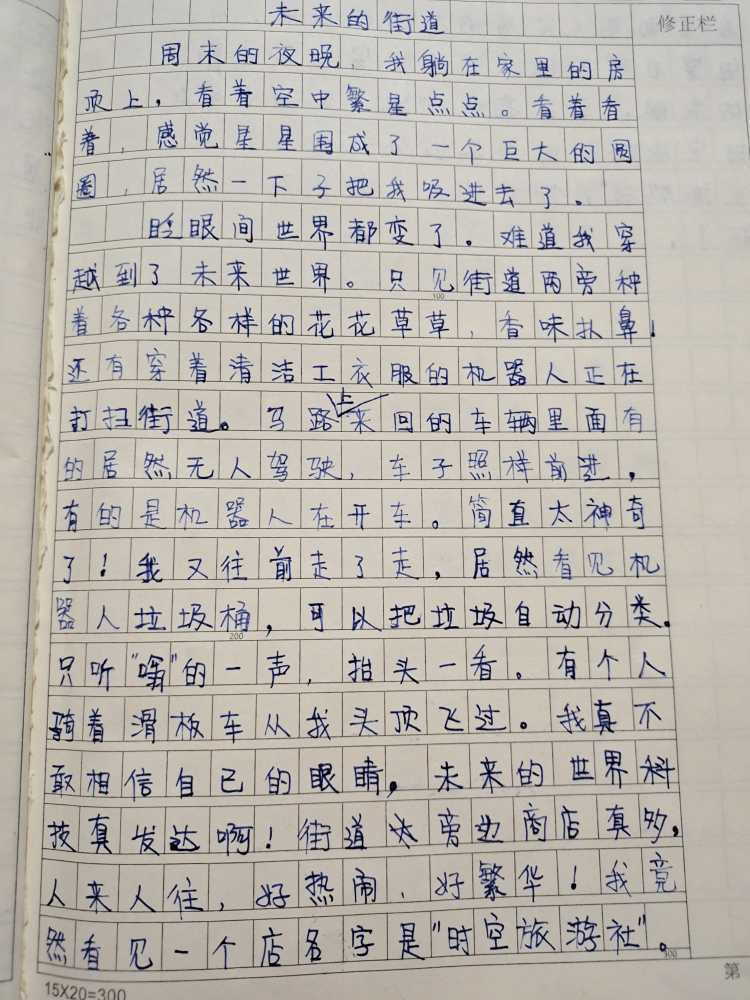 未来的街道
修正栏
周末的夜晚，我躺在家里的房
顶上，看着空中繁星点点。看着看
着，感觉星星围成了一个巨大的圆
圈，居然一下子把我吸进去了。
眨眼间世界都变了。难道我穿
越到了未来世界。只见街道两旁种
100
着各种各样的花花草草，香味扑鼻！
还有穿着清洁工衣服的机器人正在
打扫街道。马路上来回的车辆里面有
的居然无人驾驶，车子照样前进，
有的是机器人在开车。简直太神奇
了！我又往前走了走，居然看见机
器人垃圾桶，可以把垃圾自动分类。
200
只听"嗡"的一声，抬头一看。有个人
骑着滑板车从我头顶飞过。我真不
敢相信自己的眼睛，未来的世界科
技真发达啊！街道旁边商店真多，
人来人往，好热闹、好繁华！我竟
然看见一个店名字是"时空旅游社"。
300
15X20=300
第